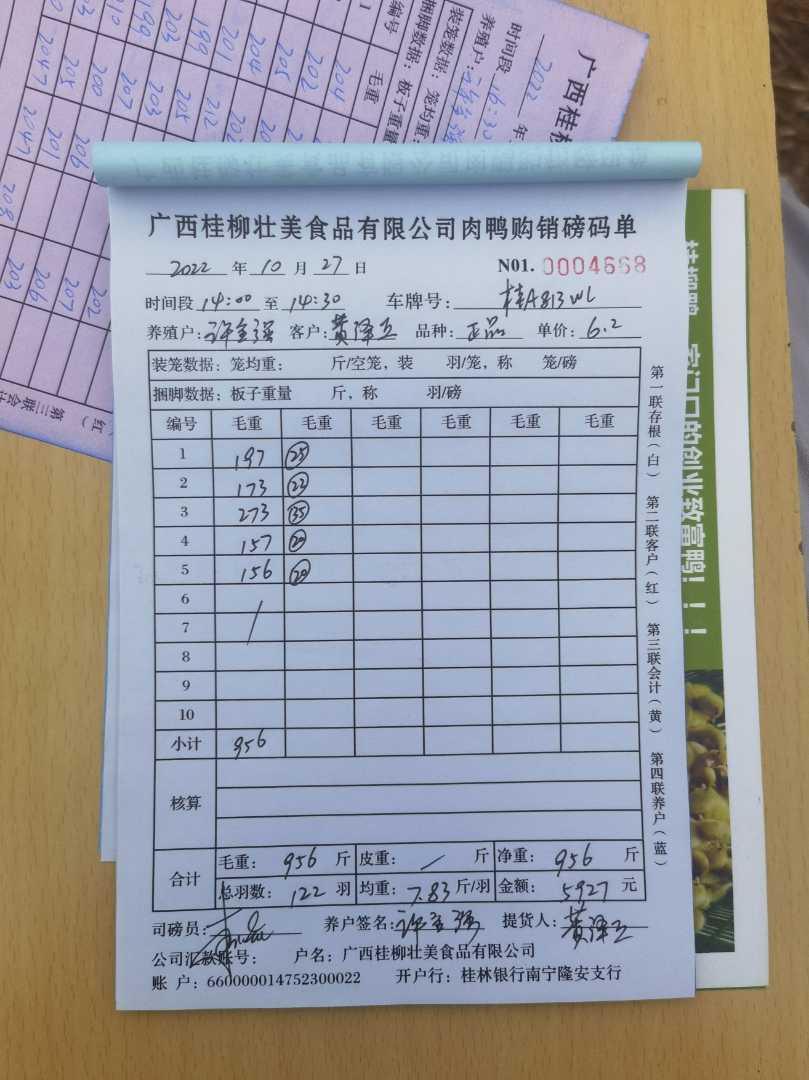 广西桂柳壮美食品有限公司肉鸭购销磅码单
2022 年 10 月 27 日 N01. 0004668
时间段 14:00 至 14:30 车牌号: 桂A813WL
养殖户: 许金强 客户: 黄泽立 品种: 正品 单价: 6.2
装笼数据: 笼均重: 斤/空笼, 装 羽/笼, 称 笼/磅
捆脚数据: 板子重量 斤, 称 羽/磅
编号 毛重 毛重 毛重 毛重 毛重 毛重
1 197 25
2 173 23
3 273 35
4 157 20
5 156 20
6
7
8
9
10
小计 956
核算
合计 毛重: 956 斤 皮重: / 斤 净重: 956 斤
总羽数: 122 羽 均重: 7.83 斤/羽 金额: 5927 元
司磅员: 养户签名: 许金强 提货人: 黄泽立
公司汇款账号: 户名: 广西桂柳壮美食品有限公司
账 户: 660000014752300022 开户行: 桂林银行南宁隆安支行
第一联存根(白) 第二联客户(红) 第三联会计(黄) 第四联养户(蓝)
家门口的创业致富鸭!!!
广西桂
2022 年
时间段 16:30
养殖户:
装笼数据: 笼均重:
捆脚数据: 板子重量
编号 毛重
第三联会计